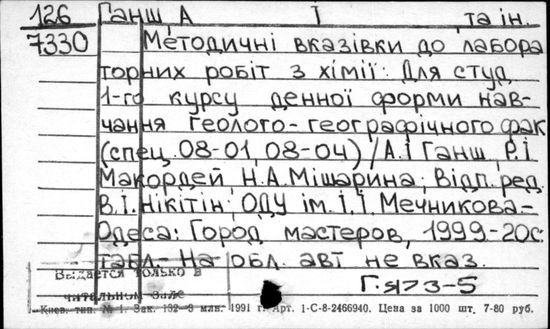 126 Ганш, А І та ін.
7330 Методичні вказівки до лабора
торних робіт з хімії: Для студ
1-го курсу денної форми нав-
чання геолого-географічного фак
(спец. 08-01, 08-04) / А.І Ганш, Р.І
Макордей, Н.А. Мішарина; Відп. ред.
В.І. Нікітін; ОДУ ім. І.І. Мечникова-
Одеса: Город мастеров, 1999-20с.
табл.- На обл. авт не вказ.
Выдается только в
читальном зале
Г.я73-5
Киев. тип. № 1. Зак. 132-3 млн. 1991 г. Арт. 1-С-8-2466940. Цена за 1000 шт. 7-80 руб.